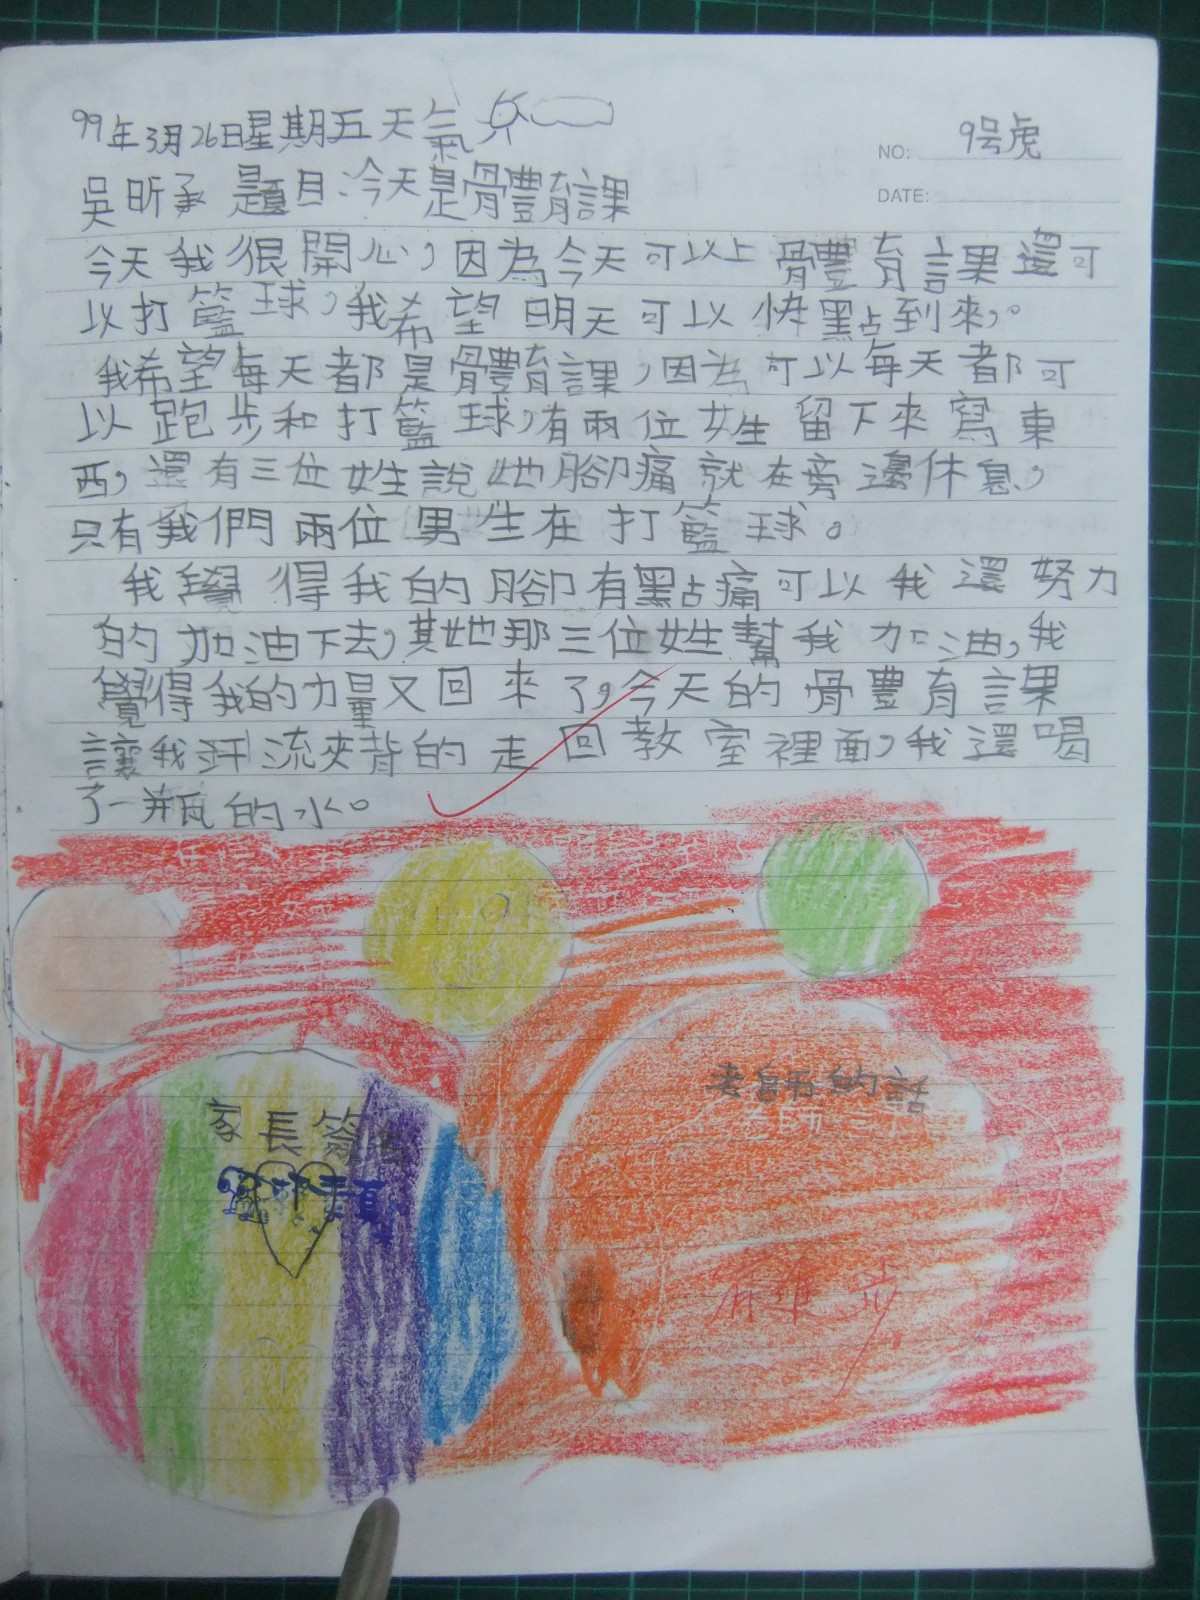 99年3月26日星期五天氣
NO: 9号虎
DATE:
吳昕承 題目:今天是體育課
今天我很開心,因為今天可以上體育課還可
以打籃球,我希望明天可以快點到來,。
我希望每天都是體育課,因為可以每天都可
以跑步和打籃球,有兩位女生留下來寫東
西,還有三位女生說她腳痛就在旁邊休息,
只有我們兩位男生在打籃球。
我覺得我的腳有點痛可以我還努力
的加油下去,其她那三位女生幫我加油,我
覺得我的力量又回來了,今天的體育課
讓我汗流夾背的走回教室裡面,我還喝
了一瓶的水。
老師的話
家長簽名
有進步